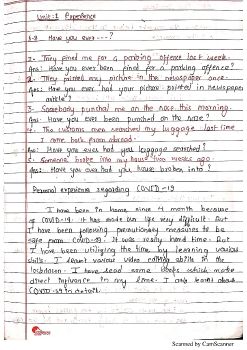 Unit:1 Experience
1-8 Have you ever ----?
2- They fined me for a parking offence last week.
Ans: Have you ever been fined for a parking offence?
2. They printed my picture in the newspaper once.
Ans: Have you ever had your picture printed in newspaper
article?
3. Somebody punched me on the nose this morning.
Ans: Have you ever been punched on the nose?
4. The customs men searched my luggage last time
I came back from abroad.
Ans: Have you ever had luggage searched?
5. Someone broke into my house two weeks ago.
Ans: Have you ever had house broken into?
Personal experience regarding COVID-19
I have been in home since 4 month because
of COVID-19. It has made our life very difficult. But
I have been following precautionary measures to be
safe from COVID-19. It was really hard time. But
I have been utilizing the time by learning various
skills. I learnt various video editing skills in the
lockdown. I have read some books which made
direct in my time. I also learnt about
COVID-19 in detail.
Scanned by CamScanner